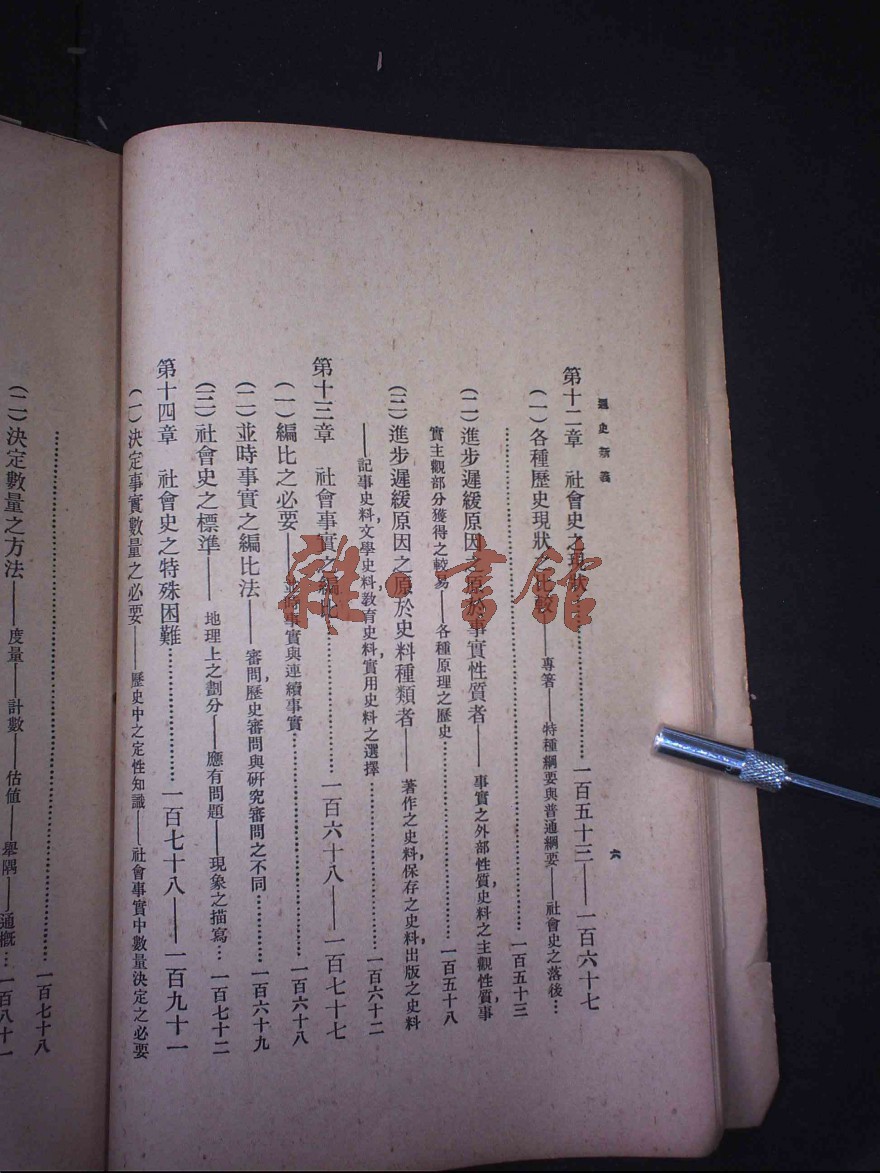 通史新義
六
第十二章　社會史之現狀……一百五十三——一百六十七
（一）各種歷史現狀之比較——專著——特種綱要與普通綱要——社會史之落後…
……一百五十三
（二）進步遲緩原因之原於事實性質者——事實之外部性質，史料之主觀性質，事
實主觀部分獲得之較易——各種原理之歷史……一百五十八
（三）進步遲緩原因之原於史料種類者——著作之史料，保存之史料，出版之史料
——記事史料，文學史料，教育史料，實用史料之選擇……一百六十二
第十三章　社會事實之編比……一百六十八——一百七十七
（一）編比之必要——並時事實與連續事實……一百六十八
（二）並時事實之編比法——審問，歷史審問與研究審問之不同……一百六十九
（三）社會史之標準——地理上之劃分——應有問題——現象之描寫…一百七十二
第十四章　社會史之特殊困難……一百七十八——一百九十一
（一）決定事實數量之必要——歷史中之定性知識——社會事實中數量決定之必要
……一百七十八
（二）決定數量之方法——度量——計數——估值——舉隅——通概…一百八十一
雜·書館